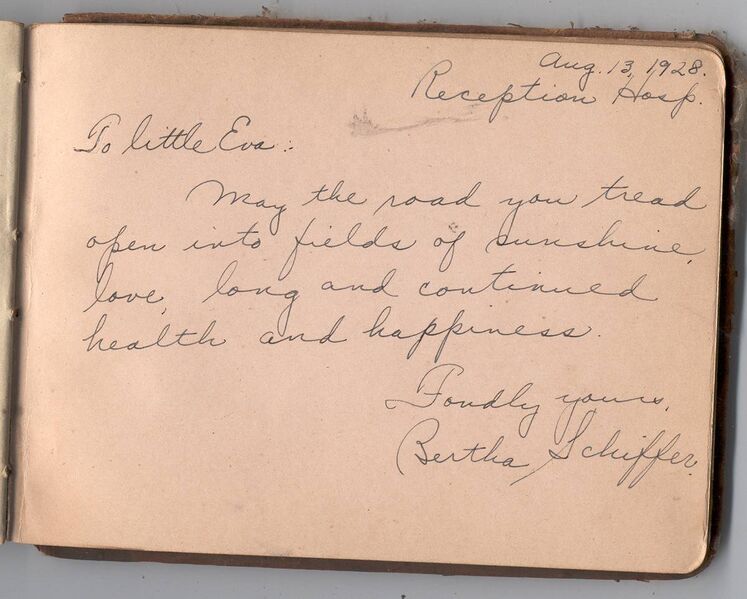 Aug. 13, 1928.
Reception Hosp.
To little Eva:
May the road you tread
open into fields of sunshine,
love, long and continued
health and happiness.
Fondly yours,
Bertha Schiffer.